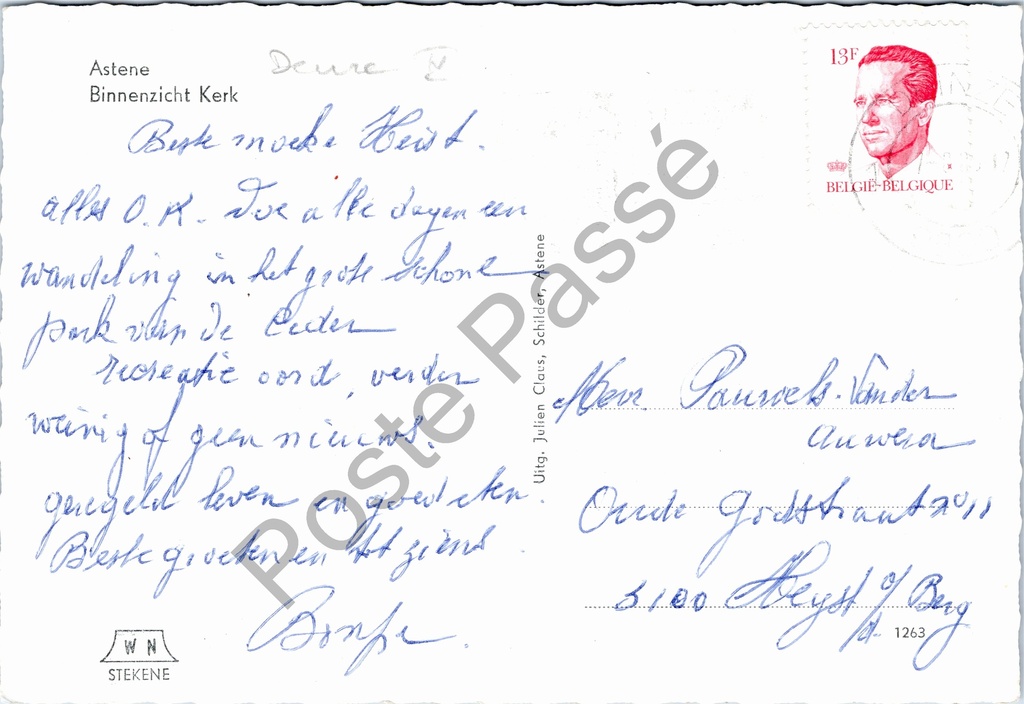 Astene
Binnenzicht Kerk
Deure V
Beste moeke Heist.
alles O.K. Doe alle dagen een
wandeling in het grote schone
park van de Ceder
recreatie oord, verder
weinig of geen nieuws.
geregeld leven en goed eten.
Beste groeten en tot ziens
Bompa.
WN
STEKENE
Uitg. Julien Claus, Schilder, Astene
13F
BELGIË-BELGIQUE
Mevr. Pauwels-Vander
auwera
Oude Godstraat
3100 Heyst o/
d. Berg
1263
Poste Passé